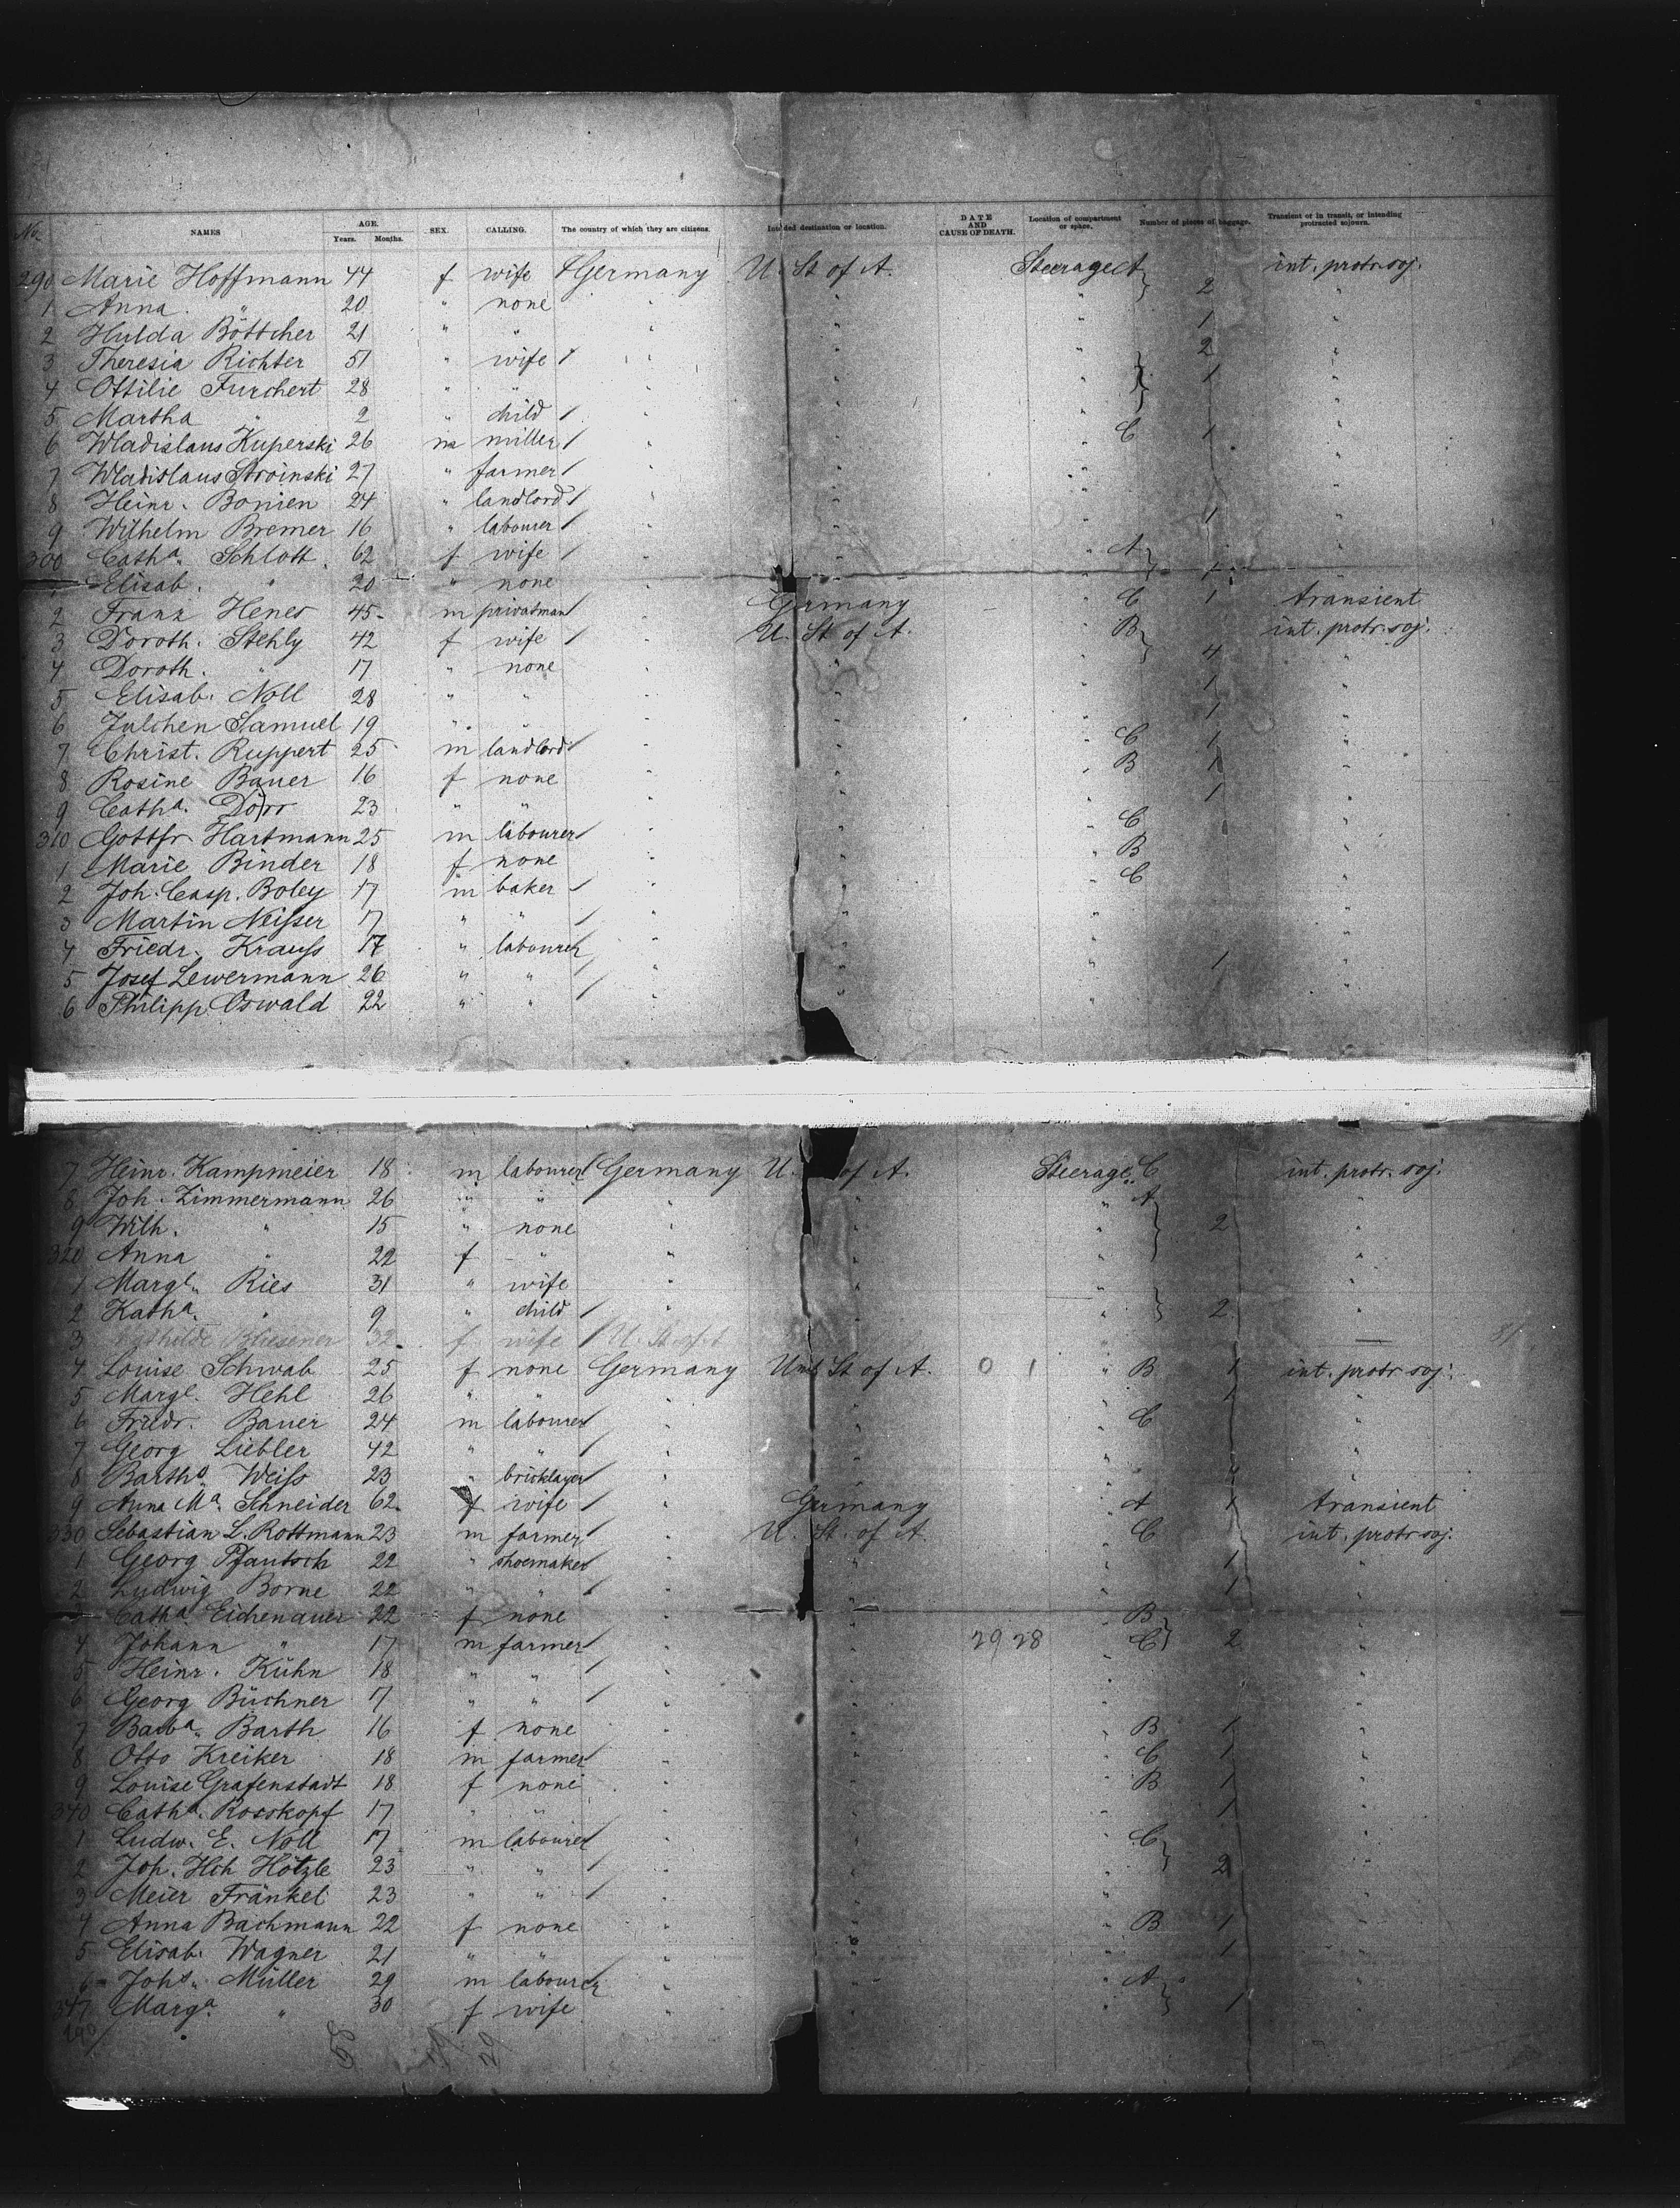 No. NAMES AGE. Years. Months. SEX. CALLING. The country of which they are citizens. Intended destination or location. DATE AND CAUSE OF DEATH. Location of compartment or space. Number of pieces of baggage. Transient or in transit, or intending protracted sojourn.
290 Marie Hoffmann 44 f wife Germany U. St of A. Steerage A 2 int. protr. soj.
1 Anna " 20 " none " " " "
2 Hulda Böttcher 21 " " " " " 1 "
3 Theresia Richter 51 " wife " " " 2 "
4 Ottilie Furchert 28 " " " " " 1 "
5 Martha " 2 " child " " " "
6 Wladislaus Kuperski 26 m miller " " " C 1 "
7 Wladislaus Stroinski 27 " farmer " " " "
8 Heinr. Bonien 24 " landlord " " " "
9 Wilhelm Bremer 16 " labourer " " " 1 "
300 Catha. Schlott 62 f wife " " " A "
" Elisab. " 20 " none " " " 1 "
2 Franz Henes 45 m privatman " Germany " C 1 transient
3 Doroth. Stehly 42 f wife " U. St of A. " B int. protr. soj.
4 Doroth. " 17 " none " " " 4 "
5 Elisab. Noll 28 " " " " " 1 "
6 Julchen Samuel 19 " " " " " 1 "
7 Christ. Ruppert 25 m landlord " " " C 1 "
8 Rosine Bauer 16 f none " " " B 1 "
9 Catha. Dörr 23 " " " " " 1 "
310 Gottfr. Hartmann 25 m labourer " " " C "
1 Marie Binder 18 f none " " " B "
2 Joh. Casp. Boley 17 m baker " " " C "
3 Martin Neisser 17 " " " " " "
4 Friedr. Krauss 17 " labourer " " " "
5 Josef Lewermann 26 " " " " " 1 "
6 Philipp Oswald 22 " " " " " "
7 Heinr. Kampmeier 18 m labourer Germany U. of A. Steerage C int. protr. soj.
8 Joh. Zimmermann 26 " " " " " A "
9 Wilh. " 15 " none " " " 2 "
320 Anna " 22 f " " " " "
1 Marge. Ries 31 " wife " " " "
2 Katha. " 9 " child " " " 2 "
3 Mathilde Bliesener 32 f wife U. St of A
4 Louise Schwab 25 f none Germany Un. St of A. 0 1 " B 1 int. protr. soj.
5 Marge. Hehl 26 " " " " " 1 "
6 Friedr. Bauer 24 m labourer " " " C "
7 Georg Liebler 42 " " " " " "
8 Bartho. Weiss 23 " bricklayer " " " "
9 Anna Ma. Schneider 62 f wife " Germany " A 1 transient
330 Sebastian L. Rottmann 23 m farmer " U. St. of A " C int. protr. soj.
1 Georg Pfautsch 22 " shoemaker " " " 1 "
2 Ludwig Borne 22 " " " " " 1 "
Catha. Eichenauer 22 f none " " " B "
4 Johann " 17 m farmer " " 29 28 " C 2 "
5 Heinr. Kühn 18 " " " " " "
6 Georg Büchner 17 " " " " " "
7 Barba. Barth 16 f none " " " B 1 "
8 Otto Kreiker 18 m farmer " " " C 1 "
9 Louise Grafenstadt 18 f none " " " B 1 "
340 Catha. Rosskopf 17 " " " " " 1 "
1 Ludw. E. Noll 17 m labourer " " " C "
2 Joh. Hch Hötzle 23 " " " " " 2 "
3 Meier Fränkel 23 " " " " " "
4 Anna Bachmann 22 f none " " " B 1 "
5 Elisab. Wagner 21 " " " " " 1 "
6 Johs. Müller 29 m labourer " " " A "
347 Marga. " 30 f wife " " " 1 "